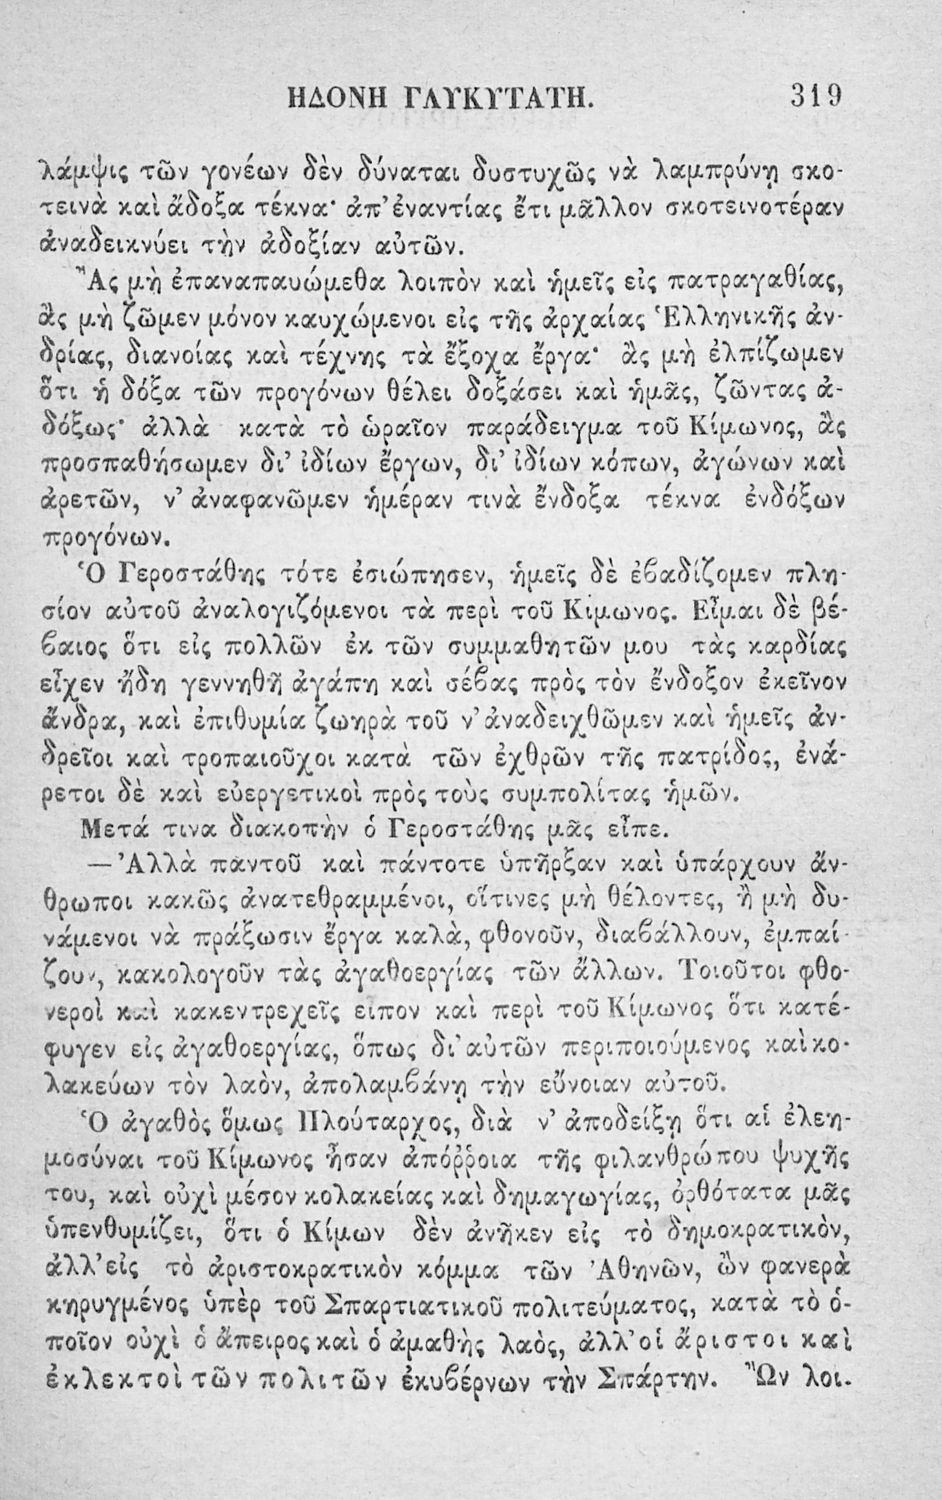 ΗΔΟΝΗ ΓΛΥΚΥΤΑΤΗ. 319
λάμψις τῶν γονέων δὲν δύναται δυστυχῶς νὰ λαμπρύνῃ σκο-
τεινὰ καὶ ἄδοξα τέκνα· ἀπ' ἐναντίας ἔτι μᾶλλον σκοτεινοτέραν
ἀναδεικνύει τὴν ἀδοξίαν αὐτῶν.
Ἂς μὴ ἐπαναπαυώμεθα λοιπὸν καὶ ἡμεῖς εἰς πατραγαθίας,
ἂς μὴ ζῶμεν μόνον καυχώμενοι εἰς τῆς ἀρχαίας Ἑλληνικῆς ἀν-
δρίας, διανοίας καὶ τέχνης τὰ ἔξοχα ἔργα· ἂς μὴ ἐλπίζωμεν
ὅτι ἡ δόξα τῶν προγόνων θέλει δοξάσει καὶ ἡμᾶς, ζῶντας ἀ-
δόξως· ἀλλὰ κατὰ τὸ ὡραῖον παράδειγμα τοῦ Κίμωνος, ἂς
προσπαθήσωμεν δι' ἰδίων ἔργων, δι' ἰδίων κόπων, ἀγώνων καὶ
ἀρετῶν, ν' ἀναφανῶμεν ἡμέραν τινὰ ἔνδοξα τέκνα ἐνδόξων
προγόνων.
Ὁ Γεροστάθης τότε ἐσιώπησεν, ἡμεῖς δὲ ἐβαδίζομεν πλη-
σίον αὐτοῦ ἀναλογιζόμενοι τὰ περὶ τοῦ Κίμωνος. Εἶμαι δὲ βέ-
βαιος ὅτι εἰς πολλῶν ἐκ τῶν συμμαθητῶν μου τὰς καρδίας
εἶχεν ἤδη γεννηθῆ ἀγάπη καὶ σέβας πρὸς τὸν ἔνδοξον ἐκεῖνον
ἄνδρα, καὶ ἐπιθυμία ζωηρὰ τοῦ ν' ἀναδειχθῶμεν καὶ ἡμεῖς ἀν-
δρεῖοι καὶ τροπαιοῦχοι κατὰ τῶν ἐχθρῶν τῆς πατρίδος, ἐνά-
ρετοι δὲ καὶ εὐεργετικοὶ πρὸς τοὺς συμπολίτας ἡμῶν.
Μετά τινα διακοπὴν ὁ Γεροστάθης μᾶς εἶπε.
— Ἀλλὰ παντοῦ καὶ πάντοτε ὑπῆρξαν καὶ ὑπάρχουν ἄν-
θρωποι κακῶς ἀνατεθραμμένοι, οἵτινες μὴ θέλοντες, ἢ μὴ δυ-
νάμενοι νὰ πράξωσιν ἔργα καλὰ, φθονοῦν, διαβάλλουν, ἐμπαί-
ζουν, κακολογοῦν τὰς ἀγαθοεργίας τῶν ἄλλων. Τοιοῦτοι φθο-
νεροὶ καὶ κακεντρεχεῖς εἶπον καὶ περὶ τοῦ Κίμωνος ὅτι κατέ-
φυγεν εἰς ἀγαθοεργίας, ὅπως δι' αὐτῶν περιποιούμενος καὶ κο-
λακεύων τὸν λαὸν, ἀπολαμβάνῃ τὴν εὔνοιαν αὐτοῦ.
Ὁ ἀγαθὸς ὅμως Πλούταρχος, διὰ ν' ἀποδείξῃ ὅτι αἱ ἐλεη-
μοσύναι τοῦ Κίμωνος ἦσαν ἀπόῤῥοια τῆς φιλανθρώπου ψυχῆς
του, καὶ οὐχὶ μέσον κολακείας καὶ δημαγωγίας, ὀρθότατα μᾶς
ὑπενθυμίζει, ὅτι ὁ Κίμων δὲν ἀνῆκεν εἰς τὸ δημοκρατικὸν,
ἀλλ' εἰς τὸ ἀριστοκρατικὸν κόμμα τῶν Ἀθηνῶν, ὢν φανερὰ
κηρυγμένος ὑπὲρ τοῦ Σπαρτιατικοῦ πολιτεύματος, κατὰ τὸ ὁ-
ποῖον οὐχὶ ὁ ἄπειρος καὶ ὁ ἀμαθὴς λαὸς, ἀλλ' οἱ ἄριστοι καὶ
ἐκλεκτοὶ τῶν πολιτῶν ἐκυβέρνων τὴν Σπάρτην. Ὢν λοι-